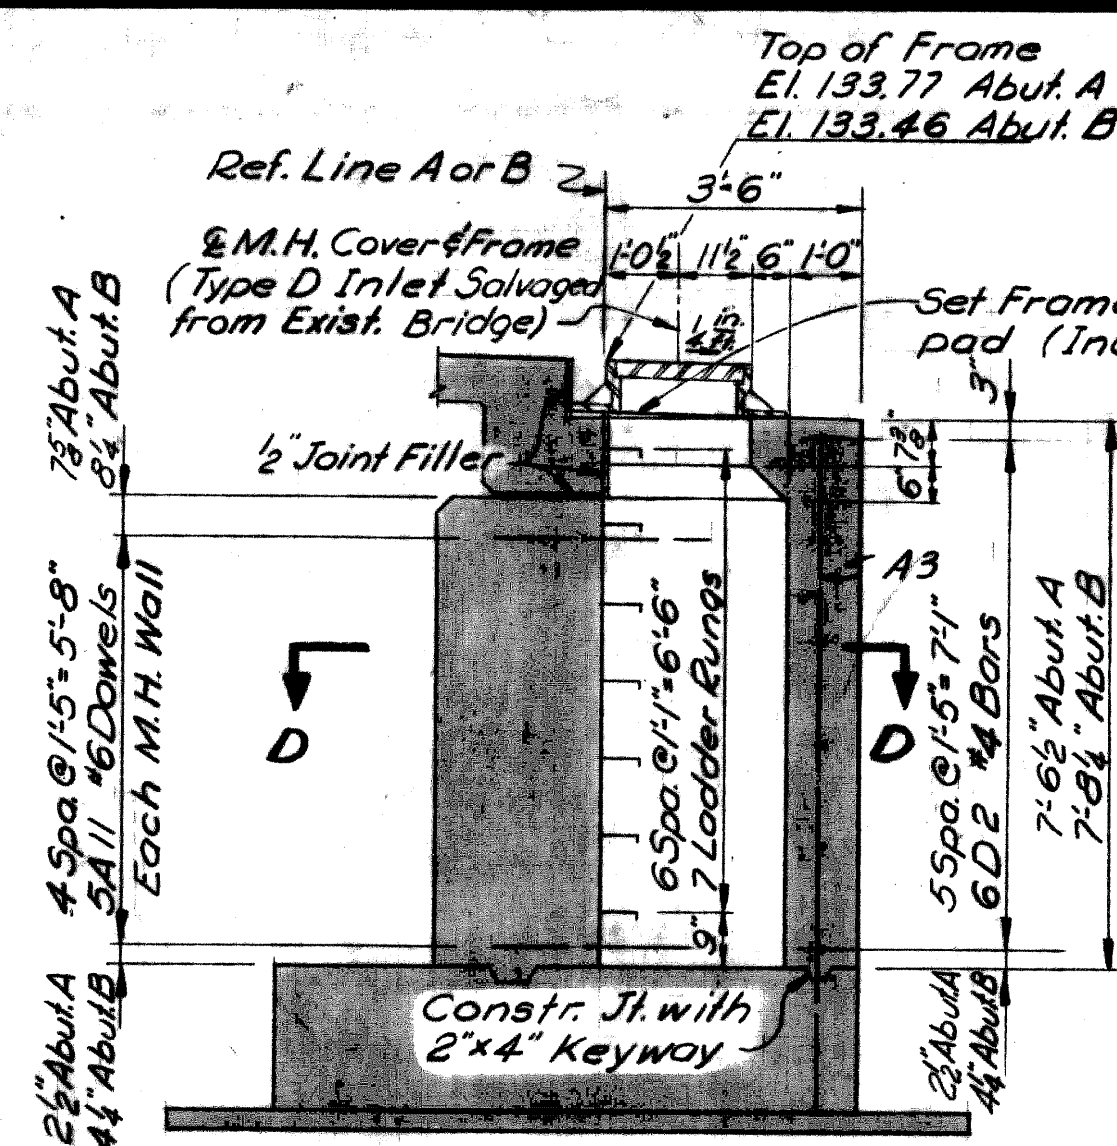 Top of Frame
El. 133.77 Abut. A
El. 133.46 Abut. B
Ref. Line A or B
3'-6"
℄ M.H. Cover & Frame
(Type D Inlet Salvaged
from Exist. Bridge)
1'-0½" 11½" 6" 1'-0"
1 in.
4 ft.
Set Frame
pad (Inc
3"
7⅝" Abut. A
8¼" Abut. B
½" Joint Filler
7⅞"
6"
A3
4 Spa. @ 1'-5" = 5'-8"
5A11 #6 Dowels
Each M.H. Wall
6 Spa. @ 1'-1" = 6'-6"
7 Ladder Rungs
9"
5 Spa. @ 1'-5" = 7'-1"
6D2 #4 Bars
7'-6½" Abut. A
7'-8¼" Abut. B
D
D
Constr. Jt. with
2"x4" Keyway
2½" Abut. A
4¼" Abut. B
2½" Abut. A
4¼" Abut. B